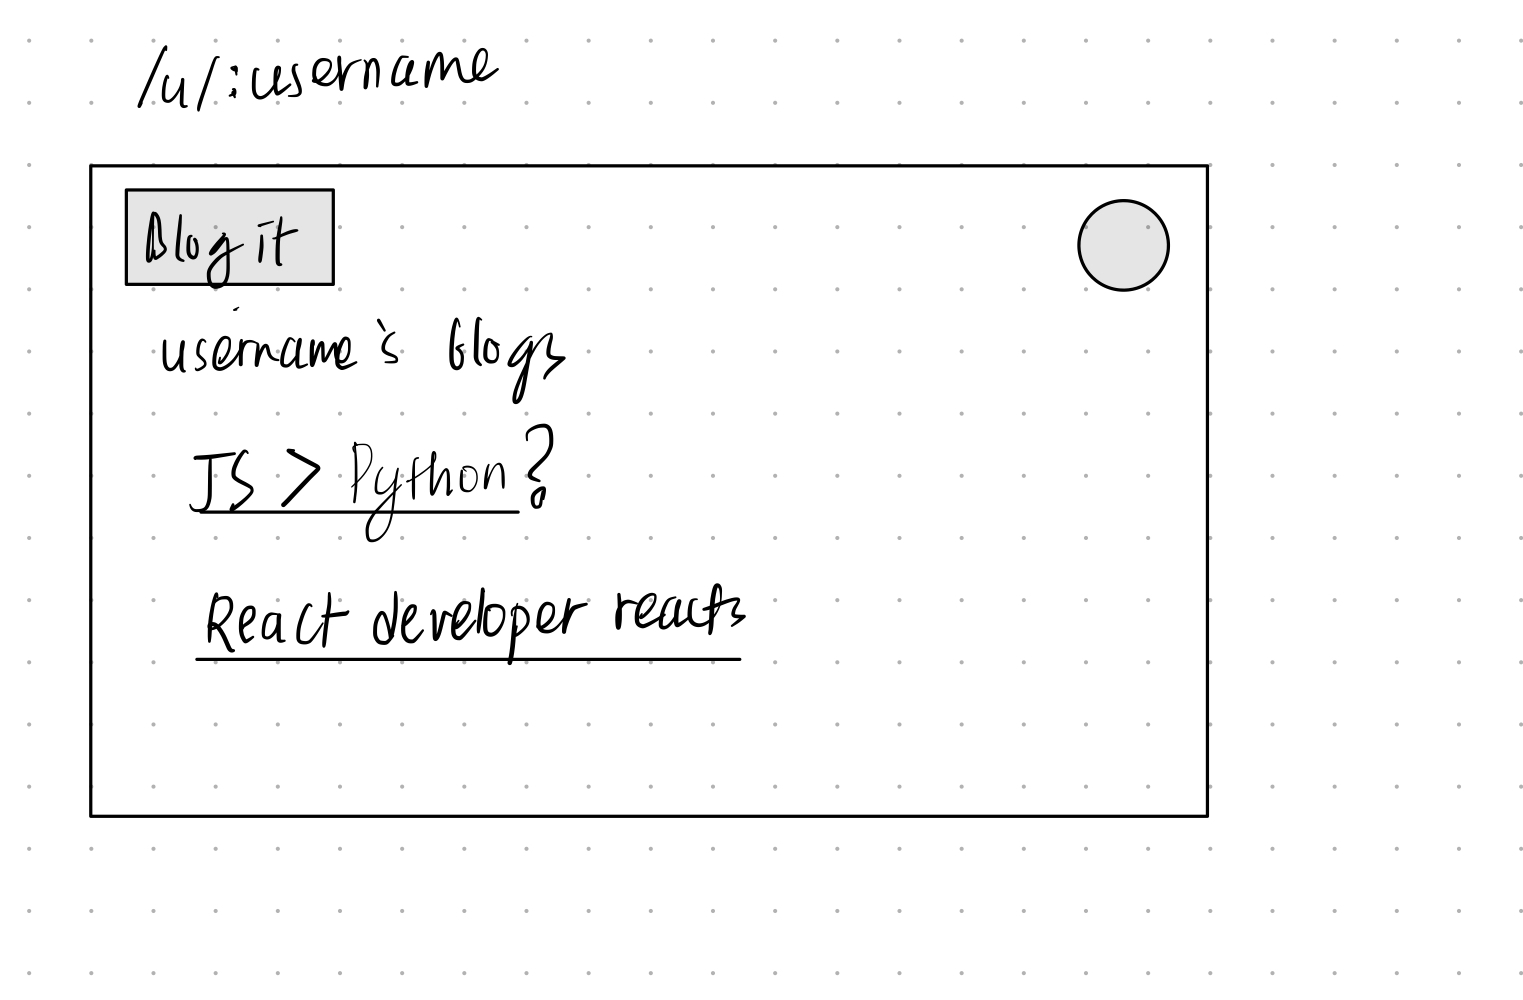 /u/:username
Blog it
username's blogs
JS > Python?
React developer reacts